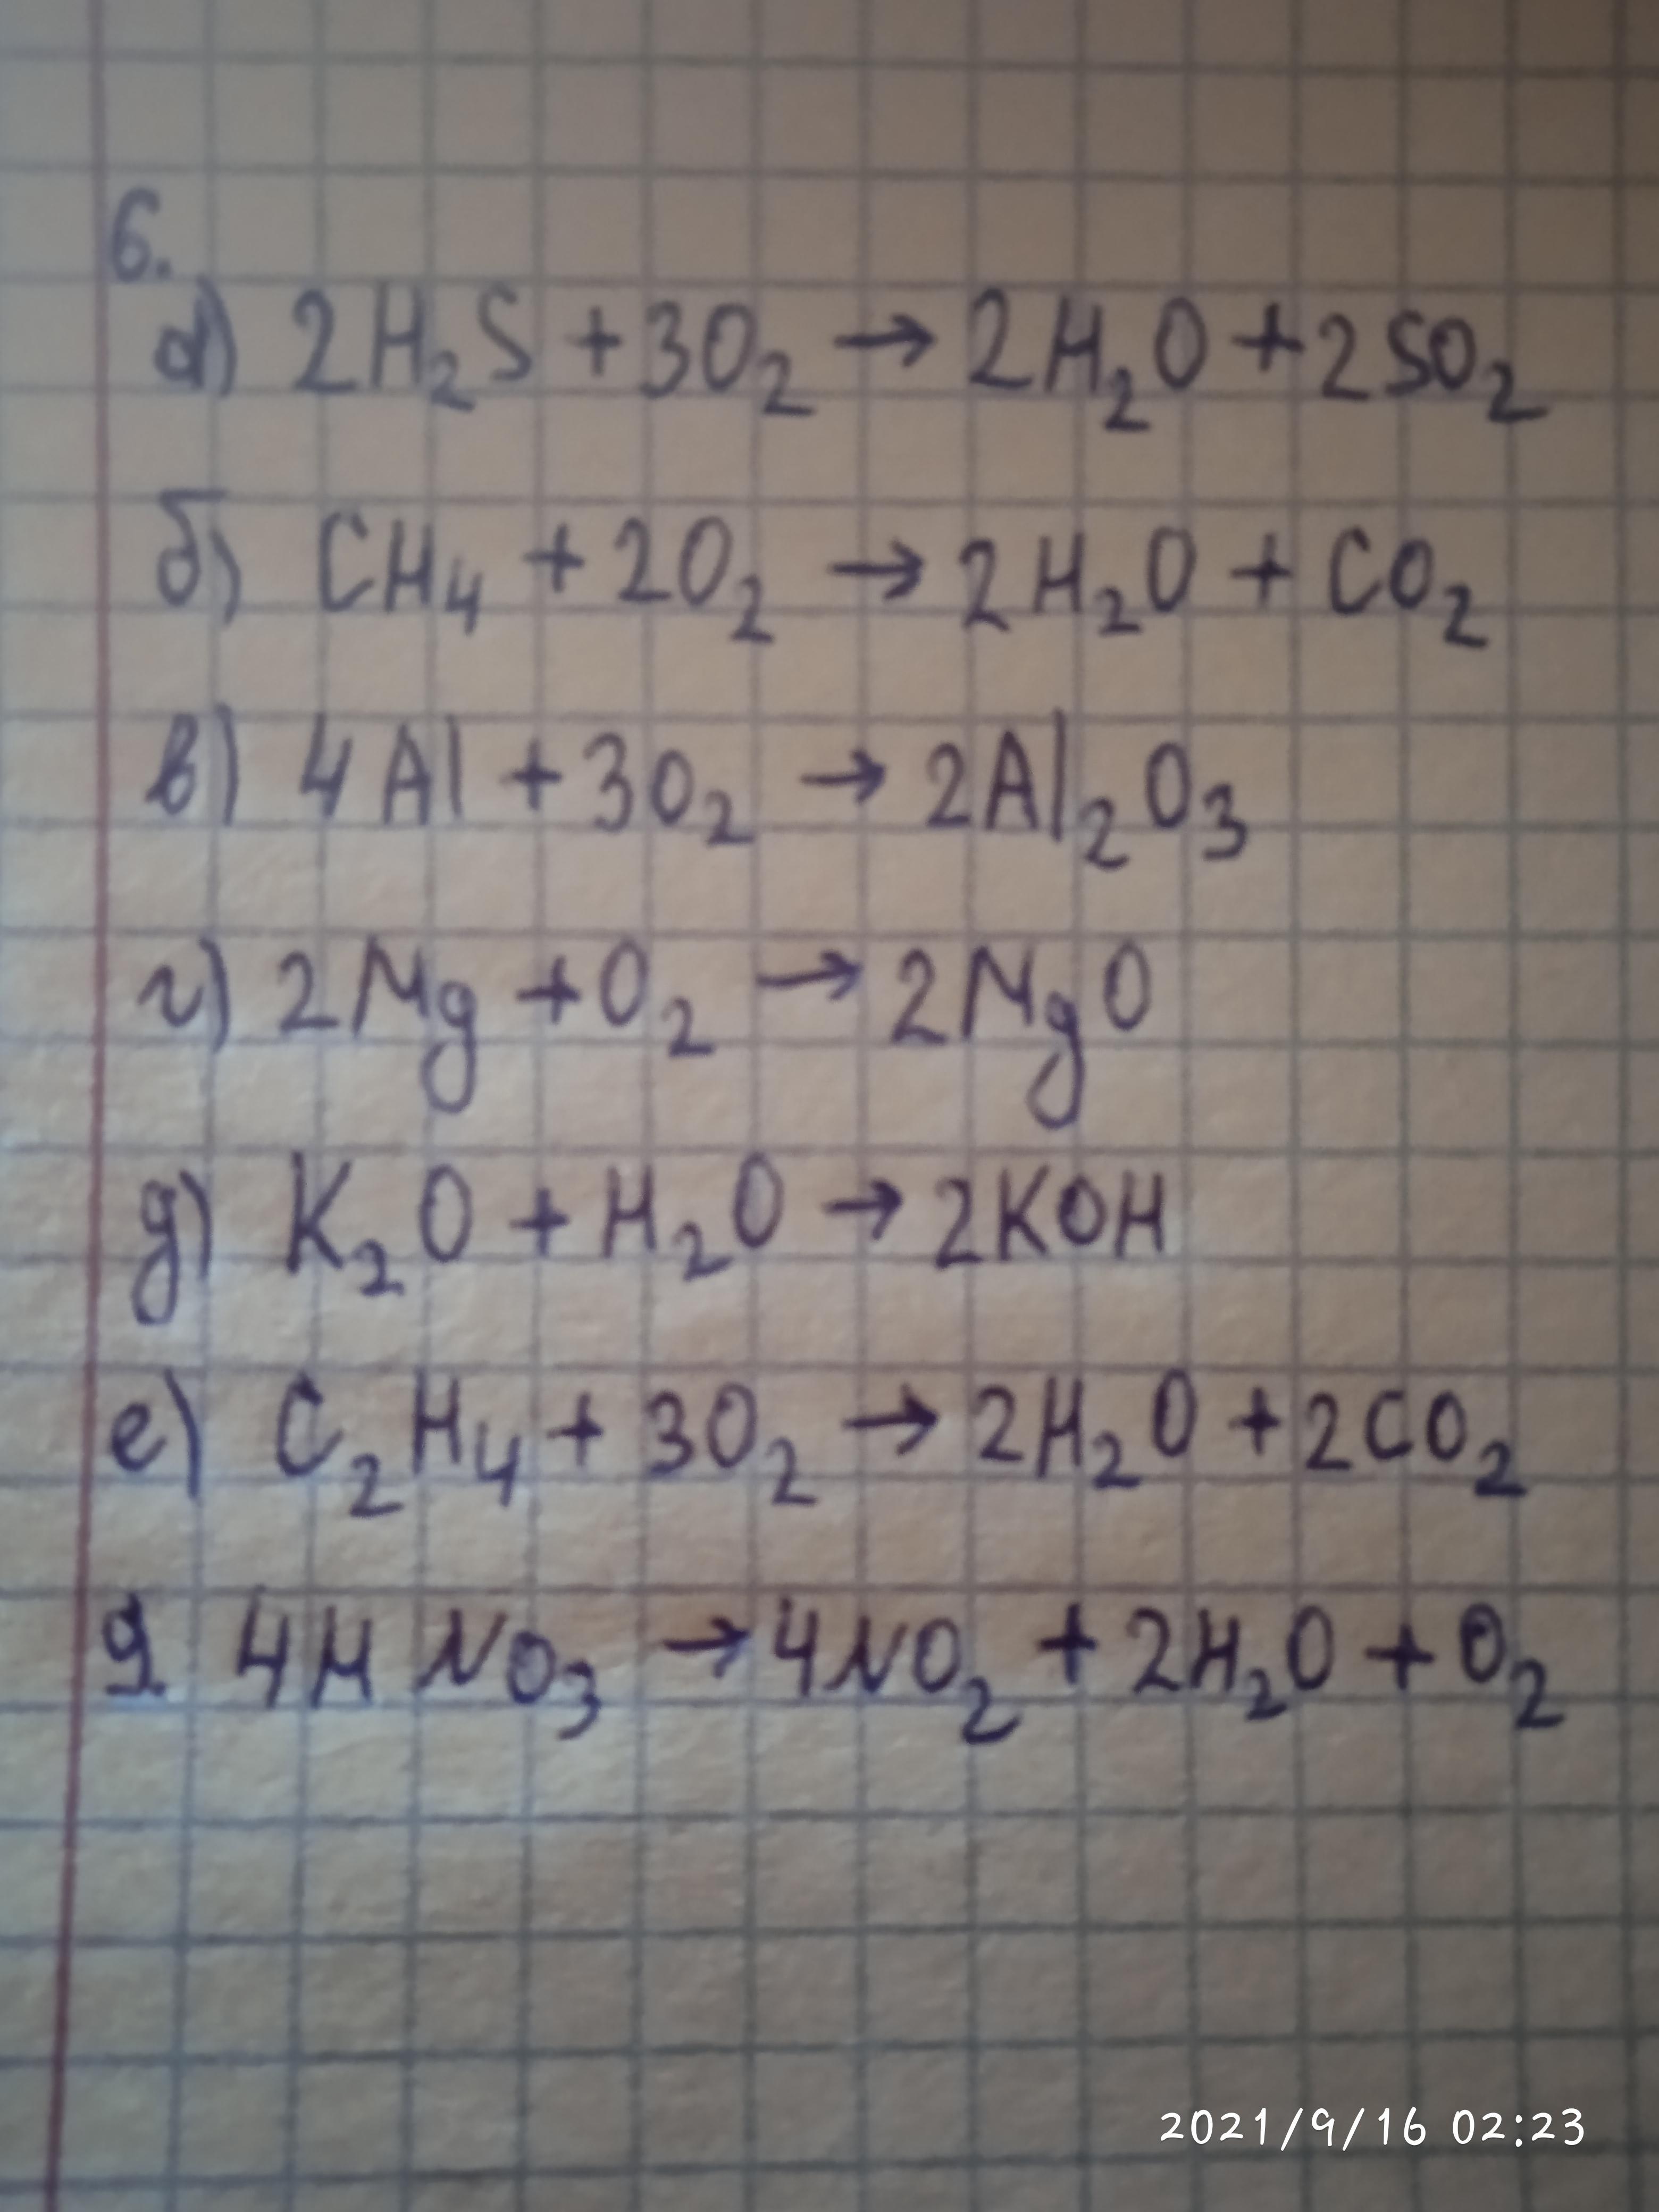 6.
а) 2H₂S + 3O₂ → 2H₂O + 2SO₂
б) CH₄ + 2O₂ → 2H₂O + CO₂
в) 4Al + 3O₂ → 2Al₂O₃
г) 2Mg + O₂ → 2MgO
д) K₂O + H₂O → 2KOH
е) C₂H₄ + 3O₂ → 2H₂O + 2CO₂
9. 4HNO₃ → 4NO₂ + 2H₂O + O₂
2021/9/16 02:23